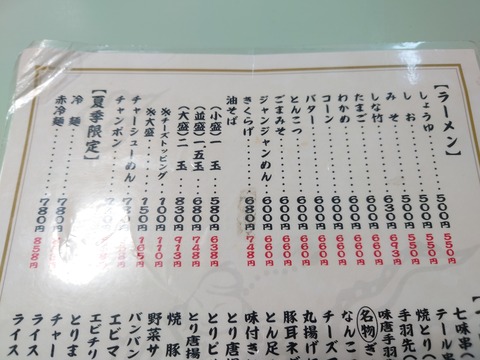 【ラーメン】
しょうゆ 500円 550円
しお 500円 550円
みそ 500円 550円
しな竹 630円 693円
たまご 600円 660円
わかめ 600円 660円
コーン 600円 660円
バター 600円 660円
とんこつ 600円 660円
ごまみそ 600円 660円
ジャンジャンめん 600円 660円
きくらげ 680円 748円
油そば
(小盛)一玉 580円 638円
(並盛)一、五玉 680円 748円
(大盛)二玉 830円 913円
※チーズトッピング 100円 110円
※大盛 150円 165円
チャーシューめん
チャンポン
【夏季限定】
冷麺
赤冷麺 780円 858円
七味串(
テール串
焼とり
手羽先(
味唐手羽
名物ぎ
なんこ
チーズつ
丸揚げ
豚耳ネギ
とん足
味付き
とり唐
とり唐揚
焼豚
野菜サ
バンバン
エビマ
エビチリ
とりま
チャー
ライス
ライス